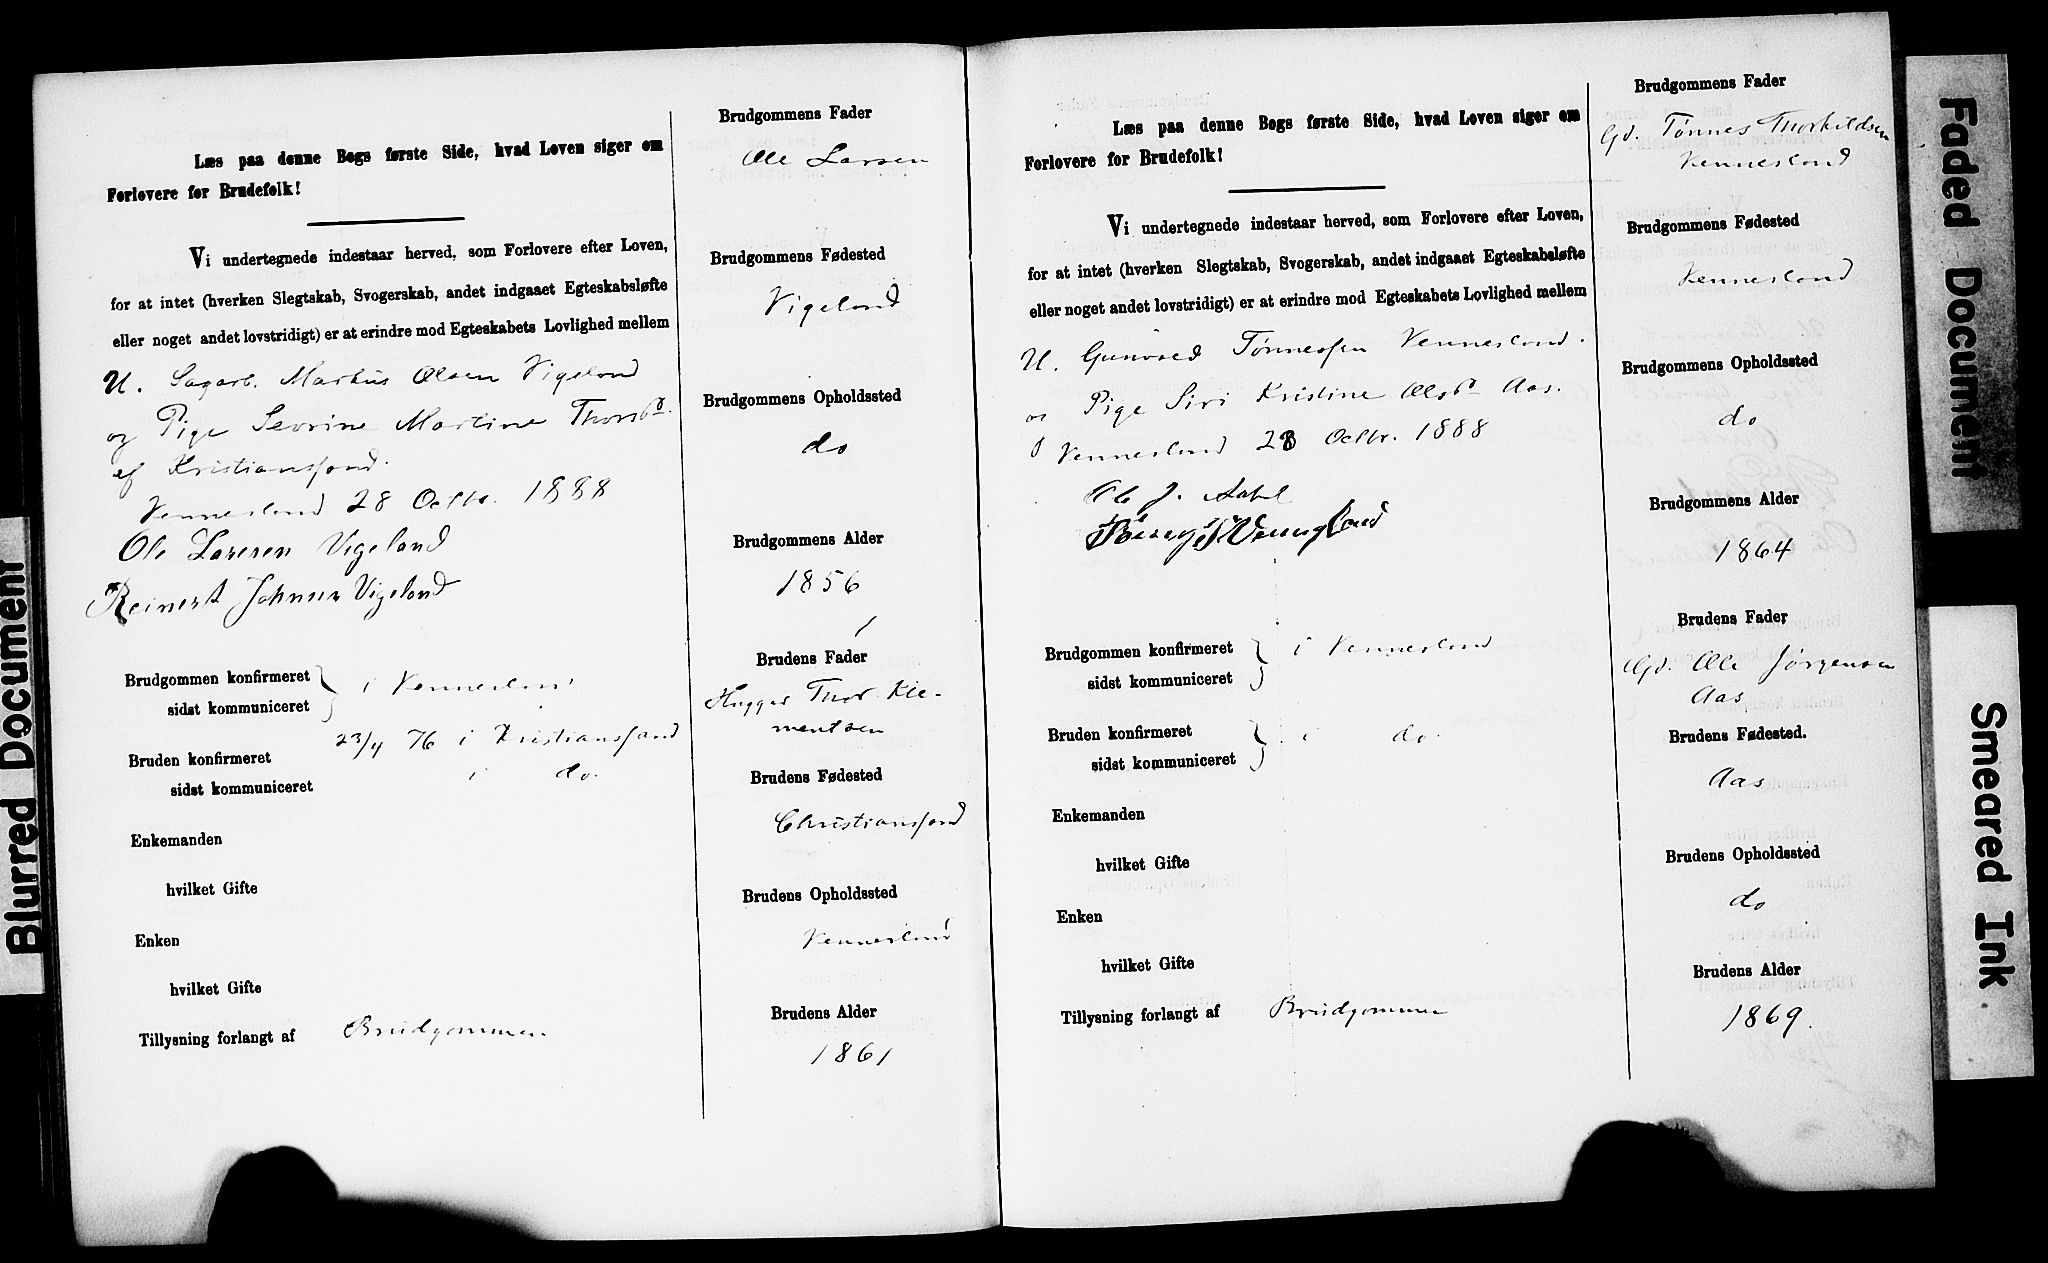 Læs paa denne Bogs første Side, hvad Loven siger om
Forlovere for Brudefolk!
Vi undertegnede indestaar herved, som Forlovere efter Loven,
for at intet (hverken Slegtskab, Svogerskab, andet indgaaet Egteskabsløfte
eller noget andet lovstridigt) er at erindre mod Egteskabets Lovlighed mellem
U. Sagarb. Markus Olsen Vigeland
og Pige Severine Martine Thorsd.
af Kristianssand.
Vennesland 28 Octbr. 1888
Ole Larsen Vigeland
Reinert Johnsen Vigeland
Brudgommen konfirmeret
sidst kommuniceret
i Vennesland
Bruden konfirmeret
sidst kommuniceret
23/4 76 i Kristianssand
i do.
Enkemanden
hvilket Gifte
Enken
hvilket Gifte
Tillysning forlangt af Brudgommen
Brudgommens Fader
Ole Larsen
Brudgommens Fødested
Vigeland
Brudgommens Opholdssted
do
Brudgommens Alder
1856
Brudens Fader
Hugger Thor Kle-
mentsen
Brudens Fødested
Christianssand
Brudens Opholdssted
Vennesland
Brudens Alder
1861
Læs paa denne Bogs første Side, hvad Loven siger om
Forlovere for Brudefolk!
Vi undertegnede indestaar herved, som Forlovere efter Loven,
for at intet (hverken Slegtskab, Svogerskab, andet indgaaet Egteskabsløfte
eller noget andet lovstridigt) er at erindre mod Egteskabets Lovlighed mellem
U. Gunvald Tønnessen Vennesland.
og Pige Siri Kristine Olsd. Aas.
Vennesland 28 Octbr. 1888
Ole J.
Brudgommen konfirmeret
sidst kommuniceret
i Vennesland
Bruden konfirmeret
sidst kommuniceret
i do.
Enkemanden
hvilket Gifte
Enken
hvilket Gifte
Tillysning forlangt af Brudgommen
Brudgommens Fader
Gd. Tønnes Thorkildsen
Vennesland
Brudgommens Fødested
Vennesland
Brudgommens Opholdssted
do
Brudgommens Alder
1864
Brudens Fader
Gd. Ole Jørgensen
Aas
Brudens Fødested.
Aas
Brudens Opholdssted
do
Brudens Alder
1869.
Blurred Document
Faded Document
Smeared Ink